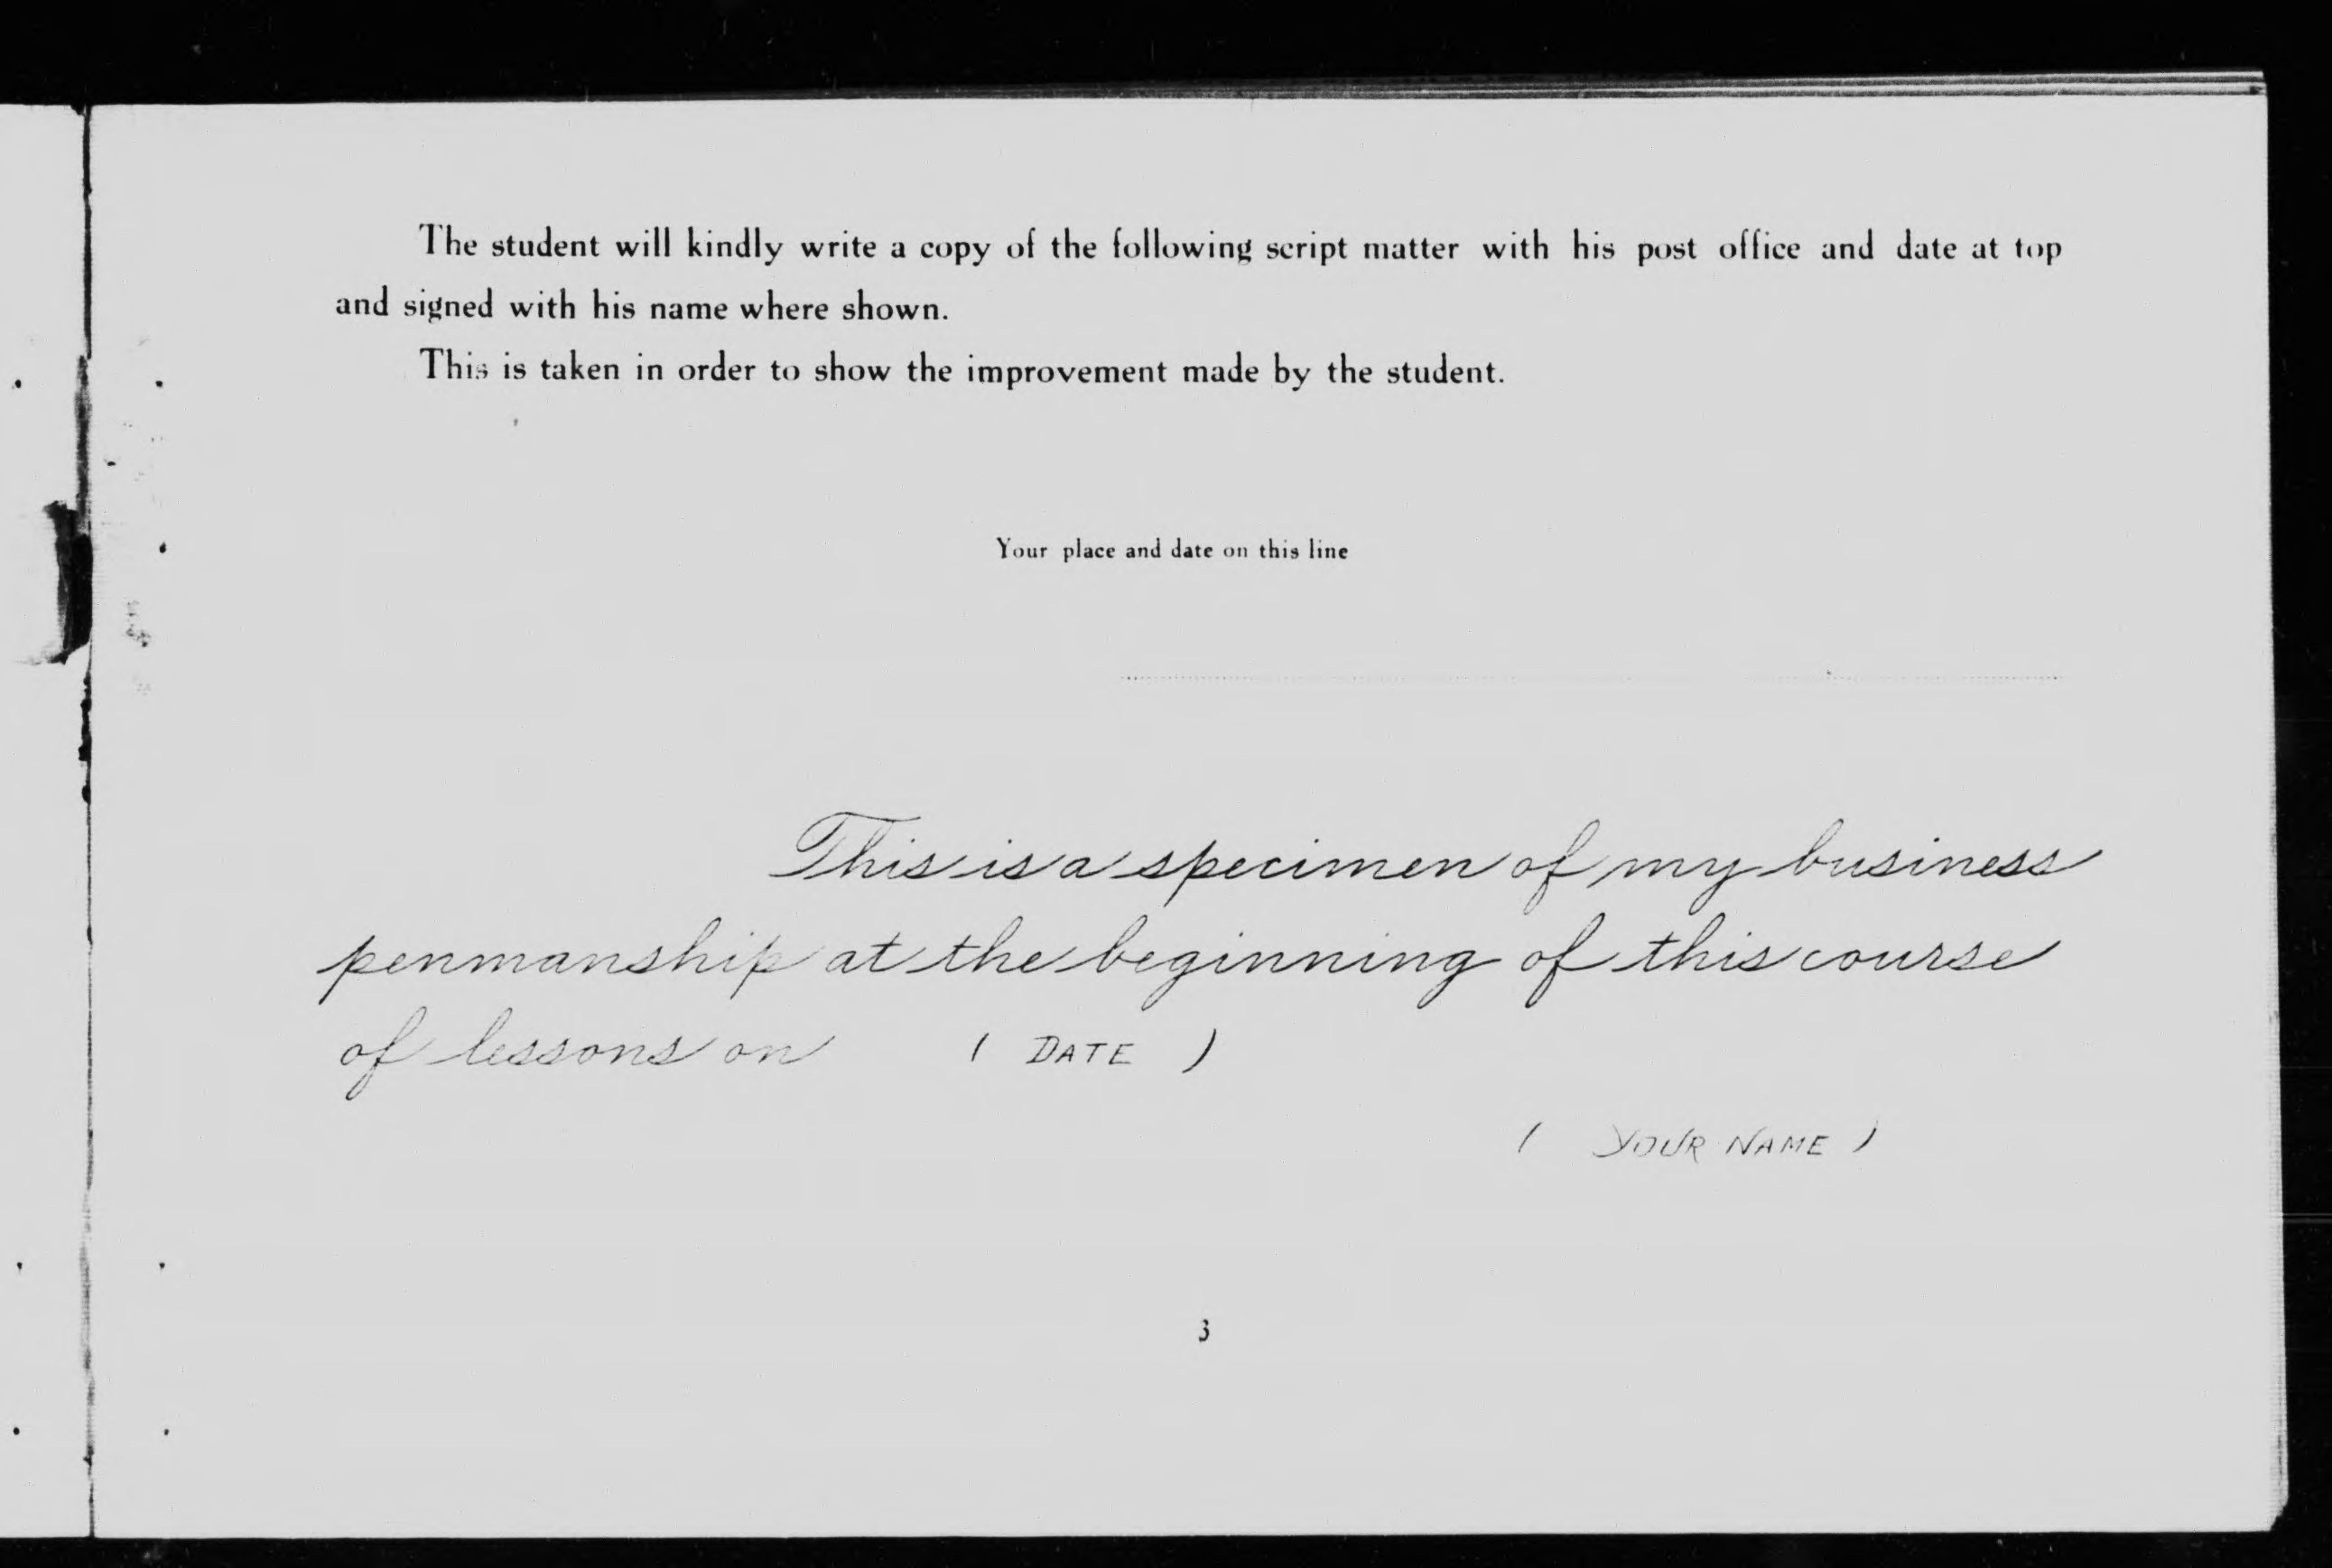 The student will kindly write a copy of the following script matter with his post office and date at top
and signed with his name where shown.
This is taken in order to show the improvement made by the student.
Your place and date on this line
This is a specimen of my business
penmanship at the beginning of this course
of lessons on ( DATE )
( YOUR NAME )
3